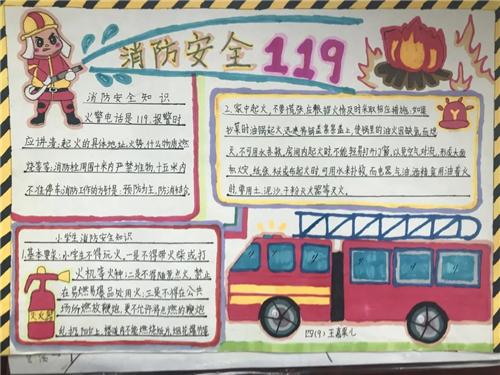 消防安全 119
消防安全知识
火警电话是119,报警时
应讲清:起火的具体地址,火势,什么物质燃
烧等等;消防栓周围十米内严禁堆物,十五米内
不准停车消防工作的方针是:预防为主,防消结合.
2.家中起火,不要慌张,应根据火情及时采取相应措施:如果
炒菜时油锅起火,迅速将锅盖紧紧盖上,使锅里的油火因缺氧而熄
灭,不可用水扑救,房间内起火时,不能轻易打开门窗,以免空气对流,形成大面
积火灾,纸张,木头或布起火时可用水来扑救,而电器,汽油,酒精,食用油着火
时,要用土,泥沙,干粉灭火器等灭火.
小学生消防安全知识
1.基本要求:小学生不得玩火,一是不得带火柴或打
火机等火种;二是不得随意点火,禁止
在易燃易爆品处用火;三是不得在公共
场所燃放鞭炮,更不允许将点燃的鞭炮
乱扔
楼道内不能燃烧纸片,烟花爆竹等
灭火器
四(9) 王嘉果儿